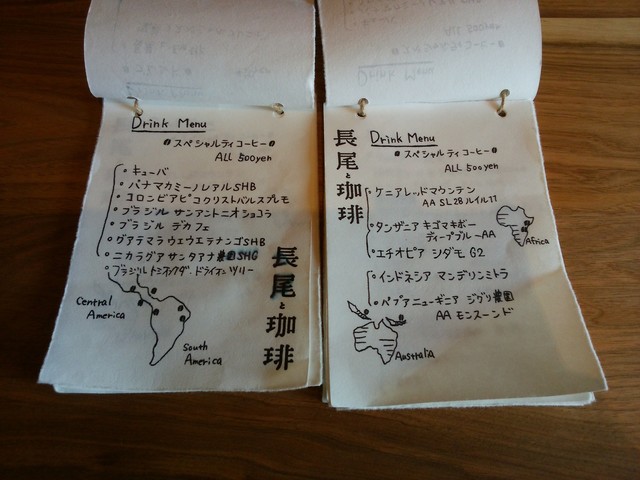 Drink Menu
スペシャルティコーヒー
ALL 500yen
キューバ
パナマカミーノレアルSHB
コロンビアピコクリストバルスプレモ
ブラジル サンアントニオショコラ
ブラジル デカフェ
グアテマラウエウエテナンゴSHB
ニカラグアサンタアナ農園SHG
ブラジル ドライオンツリー
Central
America
South
America
長尾と珈琲
Drink Menu
スペシャルティコーヒー
ALL 500yen
ケニアレッドマウンテン
AA SL28ルイル11
タンザニア キゴマキボー
ディープブルーAA
エチオピア シダモ G2
Africa
インドネシア マンデリンミトラ
パプアニューギニア ジグリ農園
AA モンスーンド
Australia
長尾と珈琲